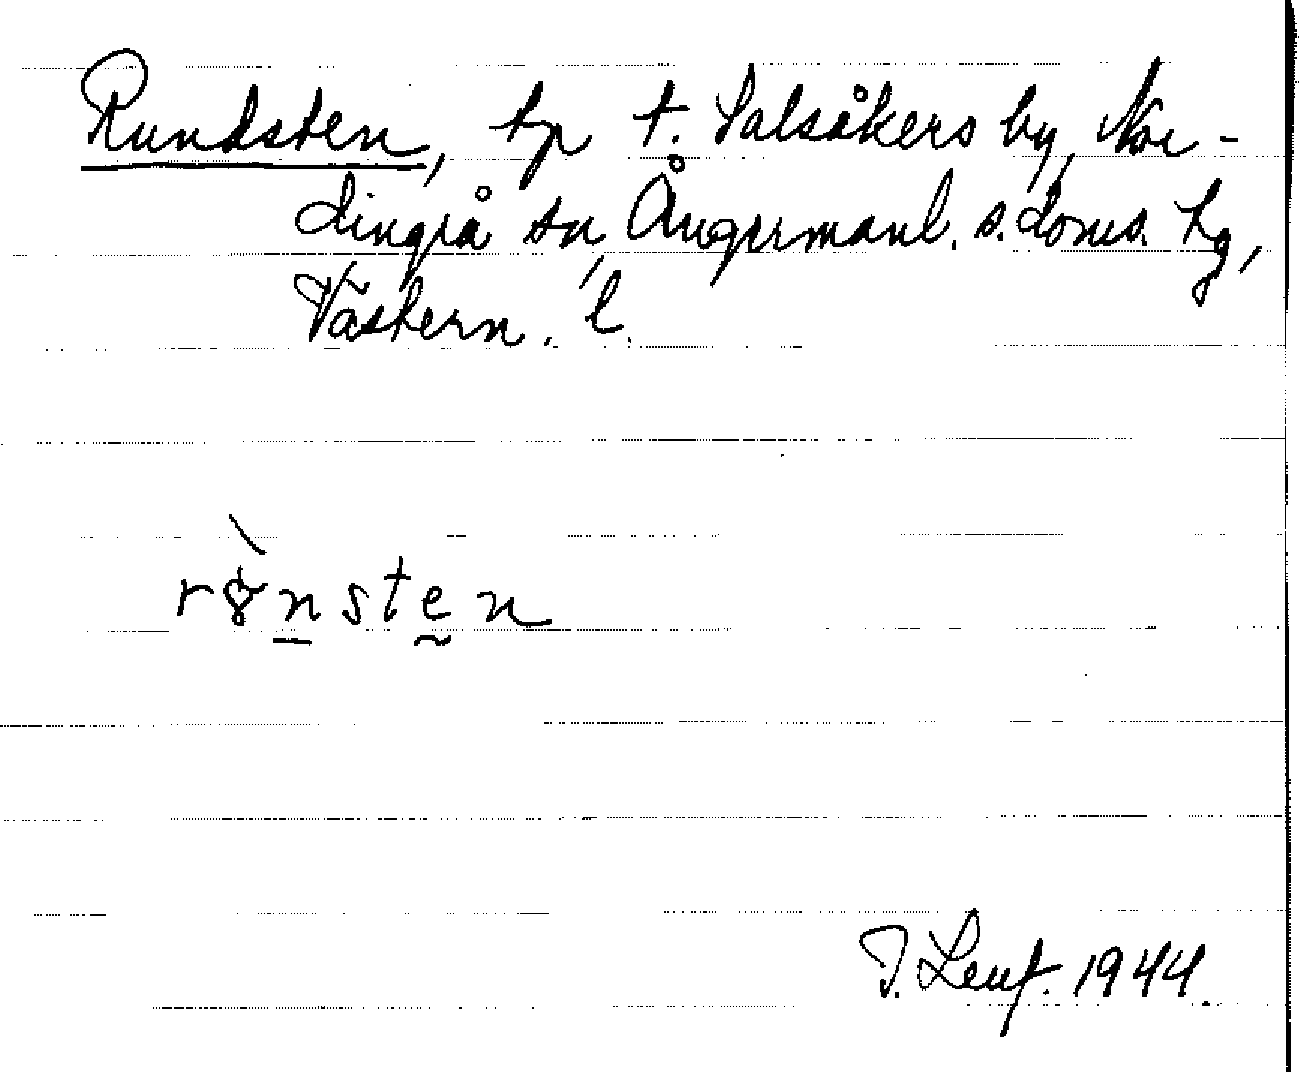 Rundsten, tp t. Salsåkers by, Nor-
dingrå sn, Ångermanl. s. doms. hg,
Västern. l.
rønsten
1944.